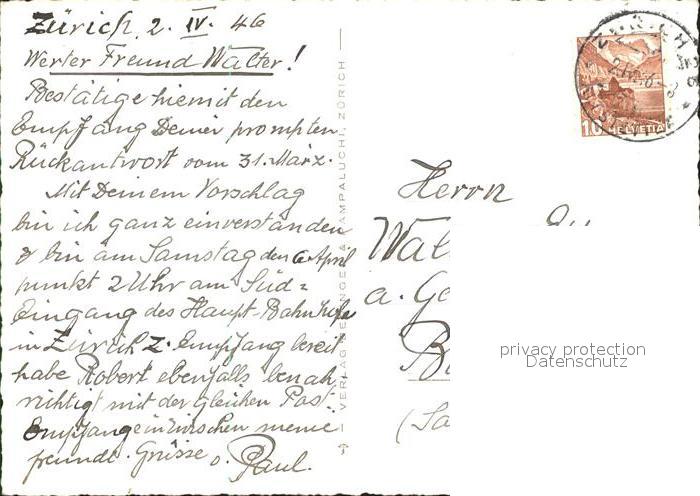 Zürich, 2. IV. 46
Werter Freund Walter!
Bestätige hiemit den
Empfang Deiner prompten
Rückantwort vom 31. März.
Mit Deinem Vorschlag
bin ich ganz einverstanden
& bin am Samstag den 6. April
punkt 2 Uhr am Süd=
Eingang des Haupt-Bahnhofs
in Zürich z. Empfang bereit
habe Robert ebenfalls benach
richtigt mit der gleichen Post
Empfange inzwischen meine
freundl. Grüsse v. Paul.
ZÜRICH
10 HELVETIA
Herrn
Walt
a. Ge
(Sa
privacy protection
Datenschutz